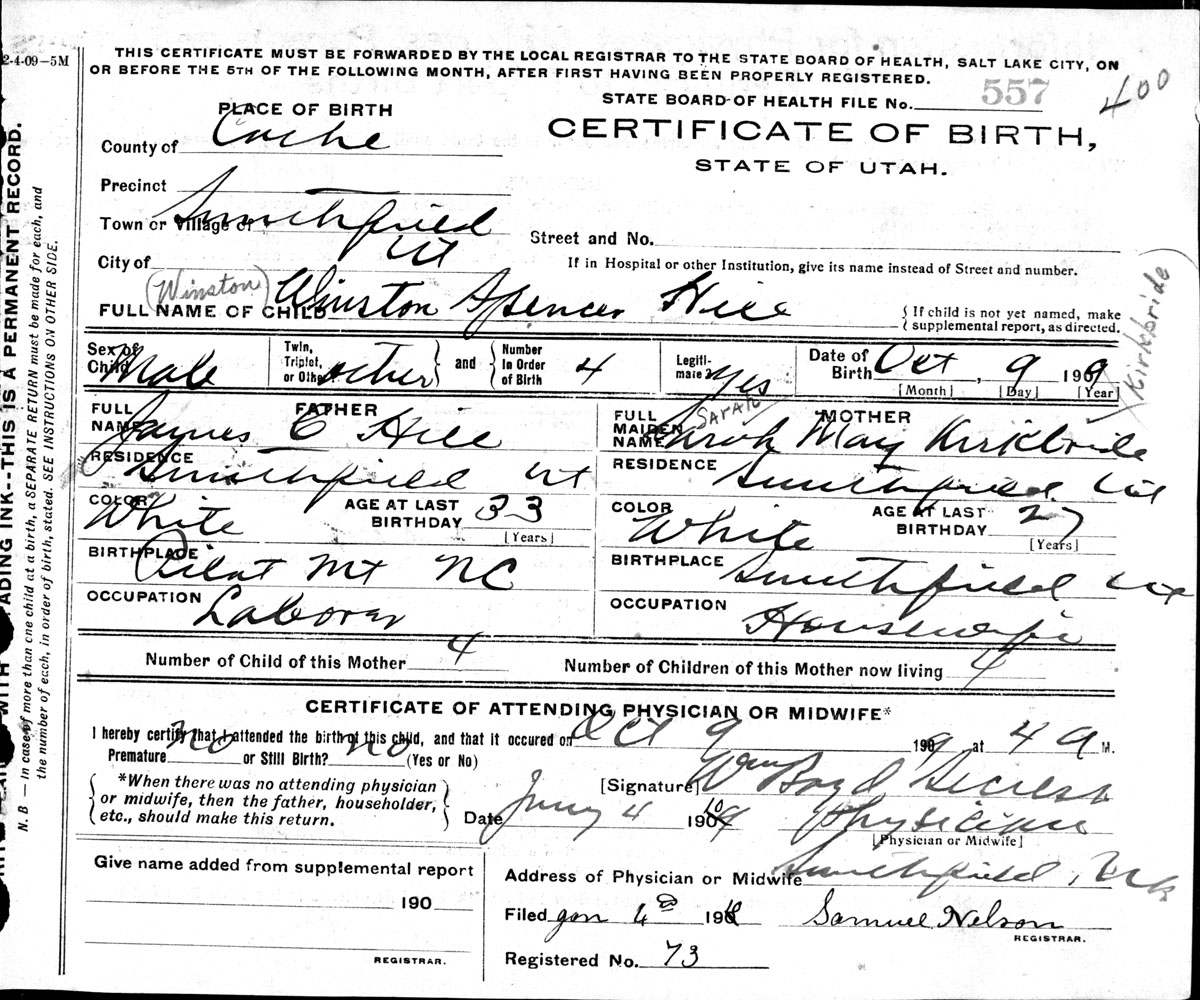 2-4-09—5M
THIS CERTIFICATE MUST BE FORWARDED BY THE LOCAL REGISTRAR TO THE STATE BOARD OF HEALTH, SALT LAKE CITY, ON
OR BEFORE THE 5TH OF THE FOLLOWING MONTH, AFTER FIRST HAVING BEEN PROPERLY REGISTERED.
STATE BOARD OF HEALTH FILE No. 557
400
PLACE OF BIRTH
CERTIFICATE OF BIRTH,
STATE OF UTAH.
County of Cache
Precinct
Town or Village of Smithfield
Street and No.
City of Ut
If in Hospital or other Institution, give its name instead of Street and number.
(Winston)
FULL NAME OF CHILD Winston Spencer Hill
{ If child is not yet named, make
supplemental report, as directed.
Sex of Child Male
Twin, Triplet, or Other other } and { Number In Order of Birth 4
Legiti-mate? Yes
Date of Birth Oct, 9 1909
[Month] [Day] [Year]
Kirkbride
FATHER
FULL NAME James C Hill
RESIDENCE Smithfield Ut
COLOR White AGE AT LAST BIRTHDAY 33
[Years]
BIRTHPLACE Pilot Mt NC
OCCUPATION Laborer
MOTHER
Sarah
FULL MAIDEN NAME Sarah May Kirkbride
RESIDENCE Smithfield Ut
COLOR White AGE AT LAST BIRTHDAY 27
[Years]
BIRTHPLACE Smithfield Ut
OCCUPATION Housewife
Number of Child of this Mother 4
Number of Children of this Mother now living 4
CERTIFICATE OF ATTENDING PHYSICIAN OR MIDWIFE*
I hereby certify that I attended the birth of this child, and that it occured on Oct 9 1909, at 4 a M.
Premature no or Still Birth? no (Yes or No)
[Signature] Wm Boyd Secrest
{ *When there was no attending physician
or midwife, then the father, householder,
etc., should make this return. }
Date Jany 4 1910
Physician
[Physician or Midwife]
Give name added from supplemental report
190
REGISTRAR.
Address of Physician or Midwife Smithfield,
Filed Jan 4 1910 Samuel Nelson
REGISTRAR.
Registered No. 73
ADING INK--THIS IS A PERMANENT RECORD.
N. B — In case of more than one child at a birth, a SEPARATE RETURN must be made for each, and
the number of each, in order of birth, stated. SEE INSTRUCTIONS ON OTHER SIDE.